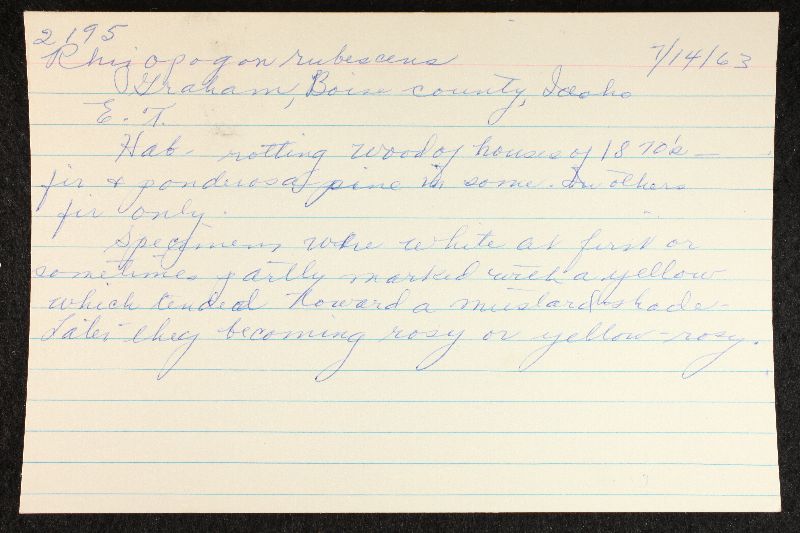 2195
Rhizopogon rubescens 7/14/63
Graham, Boise county, Idaho
E. T.
Hab - rotting wood of houses of 1870's -
fir & ponderosa pine in some. In others
fir only.
Specimens were white at first or
sometimes partly marked with a yellow
which tended toward a mustard shade -
Later they becoming rosy or yellow-rosy.